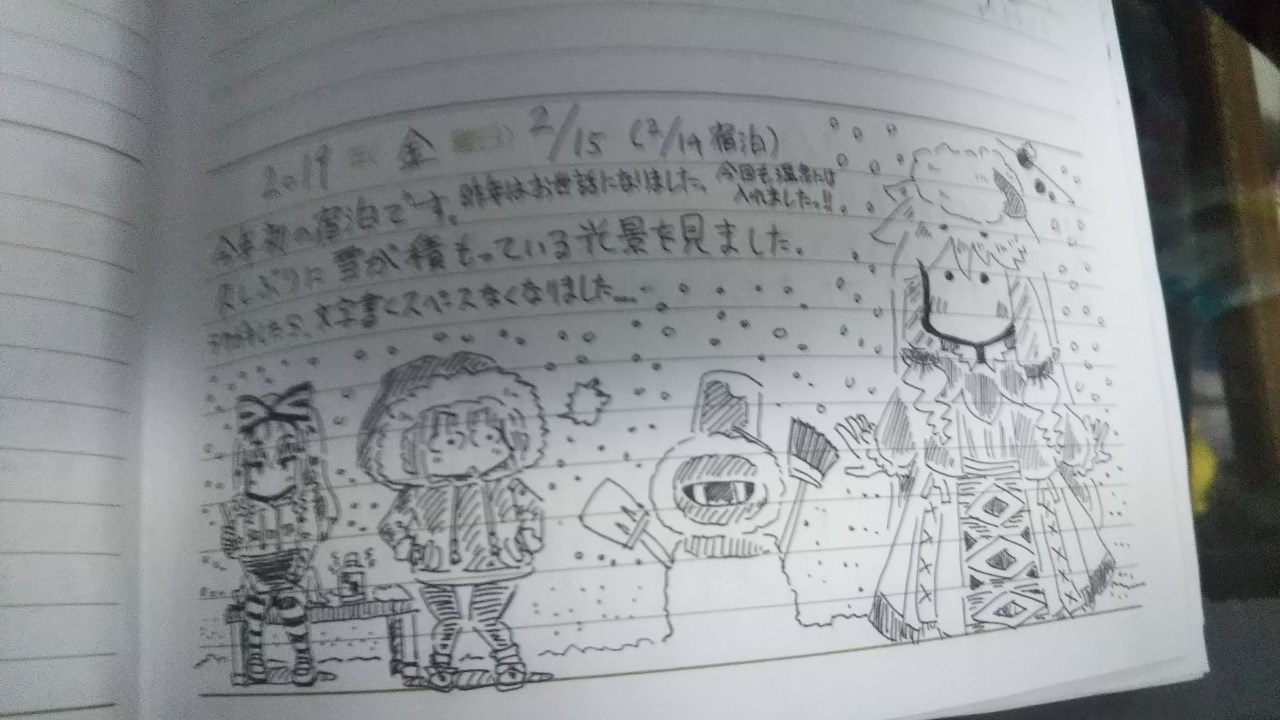 2019 金 2/15 (2/14宿泊)
今年初の宿泊です。昨年はお世話になりました。今回も温泉には
入れましたっ!!
久しぶりに雪が積もっている光景を見ました。
文字書くスペースなくなりました....